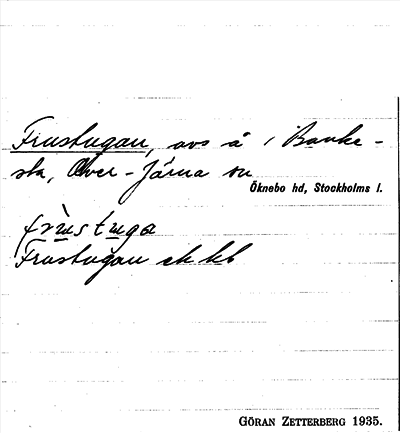 Frustugan, avs å i Banke-
sta, Över-Järna sn
Öknebo hd, Stockholms l.
frùstuga
Frustugan ek kbl
GÖRAN ZETTERBERG 1935.